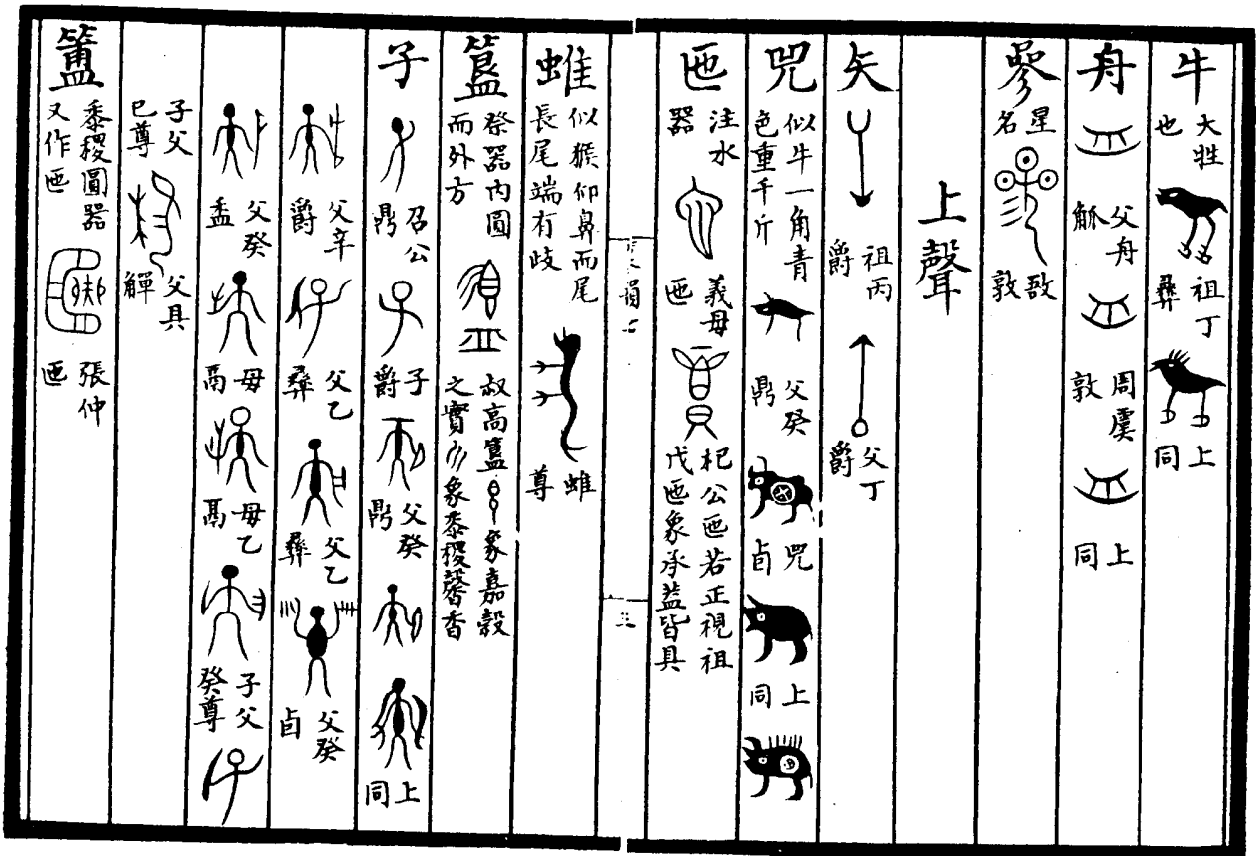 牛 大牲也 祖丁彝 上同
舟 父舟觚 周虞敦 上同
參 星名 敔敦
上聲
矢 祖丙爵 父丁爵
兕 似牛一角青色重千斤 父癸鼎 兕卣 上同
匜 注水器 義母匜 杞公匜若正視祖戊匜象承益皆具
蜼 似猴仰鼻而尾長尾端有歧 蜼尊
簋 祭器內圓而外方 叔高簋 象嘉穀之實 象黍稷馨香
子 召公鼎 子爵 父癸鼎 上同
父辛爵 父乙彝 父乙彝 父癸卣
父癸盉 母鬲 母乙鬲 子父癸尊
子父巳尊 父具觶
簠 黍稷圓器又作匜 張仲匜